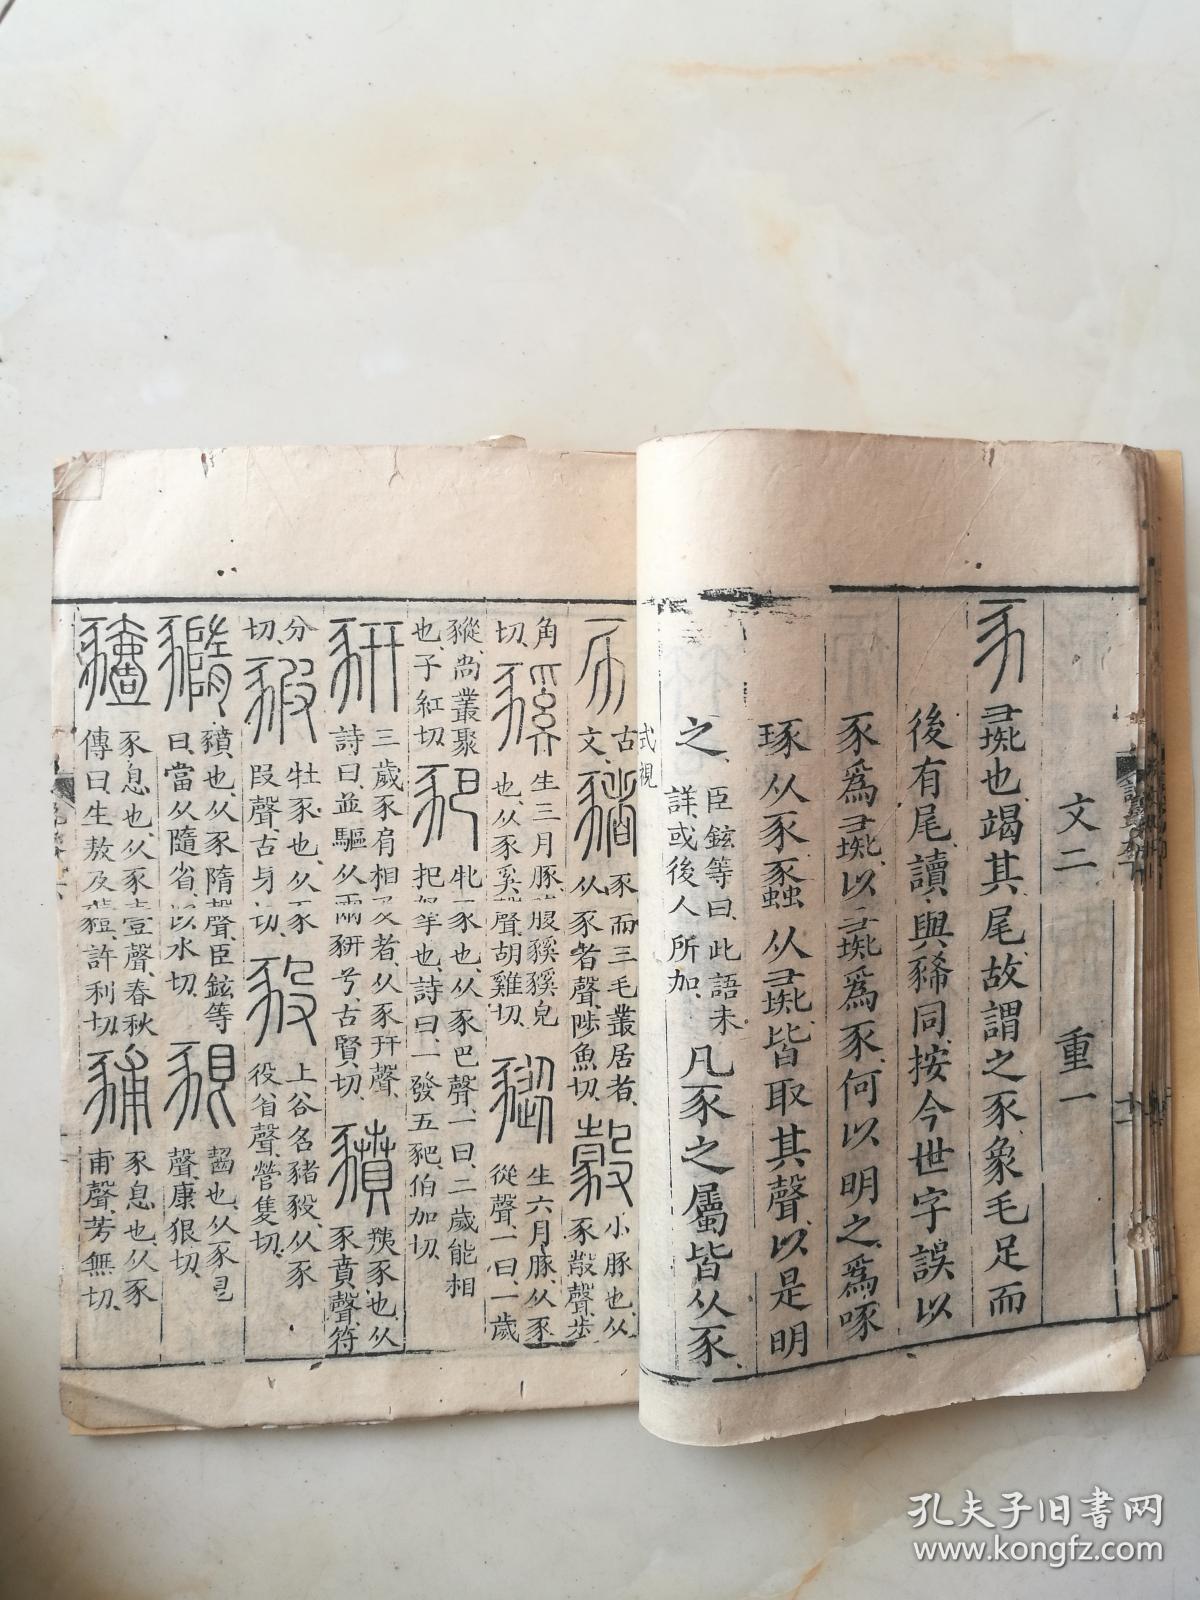 文二 重一
豕 彘也、竭其尾故謂之豕、象毛足而
後有尾、讀與豨同、按今世字誤以
豕爲彘、以彘爲豕、何以明之、爲啄
琢从豕蟸从彘皆取其聲、以是明
之、臣鉉等曰、此語未詳或後人所加、凡豕之屬皆从豕
式視
古文、豬 豕而三毛叢居者、从豕者聲、陟魚切、豰 小豚也、从豕㱿聲、步
角切、豯 生三月豚、腹豯豯皃也、从豕奚聲、胡雞切、豵 生六月豚、从豕從聲、一曰、一歲
豵、尚叢聚也、子紅切、豝 牝豕也、从豕巴聲、一曰、二歲能相把拏也、詩曰、一發五豝、伯加切、
豜 三歲豕肩相及者、从豕幵聲、詩曰、並驅从兩豜兮、古賢切、豶 羠豕也、从豕賁聲、符
分切、豭 牡豕也、从豕叚聲、古牙切、豛 上谷名豬豛、从豕役省聲、營隻切、
豷 豶也、从豕隋聲、臣鉉等曰、當从隨省、以水切、豤 齧也、从豕㫐聲、康狠切、
豷 豕息也、从豕壹聲、春秋傳曰生敖及豷、許利切、豧 豕息也、从豕甫聲、芳無切、
孔夫子旧书网
www.kongfz.com